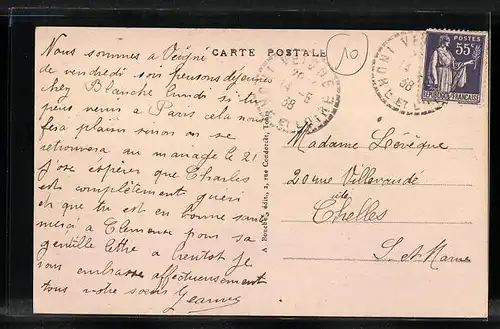 CARTE POSTALE
10
POSTES
55c
REPUBLIQUE FRANÇAISE
VEIGNÉ
14 - 5
38
INDRE-ET-LOIRE
Nous sommes a Veigné
de vendredi soir pensons déjeuner
chez Blanche lundi si tu
peux venir a Paris cela nous
fera plaisir sinon on se
retrouvera au mariage le 21
J'ose espérer que Charles
est complètement guéri
et que tu est en bonne santé
merci à Clémence pour sa
gentille lettre a bientôt je
vous embrasse affectueusement
tous votre soeur Jeanne
A. Boucher, édit., 2, rue Tours
Madame Lévêque
20 rue Villevaudé
Chelles
S. et Marne